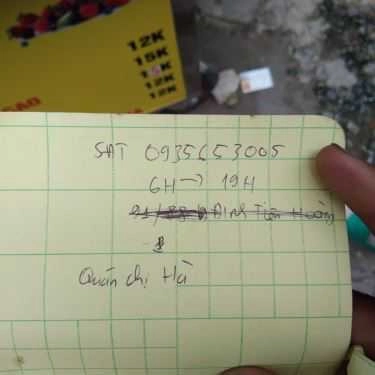 12K
15K
15K
12K
12K
SĐT 0935653005
6H → 19H
Đinh Tiên Hoàng
Quán chị Hà